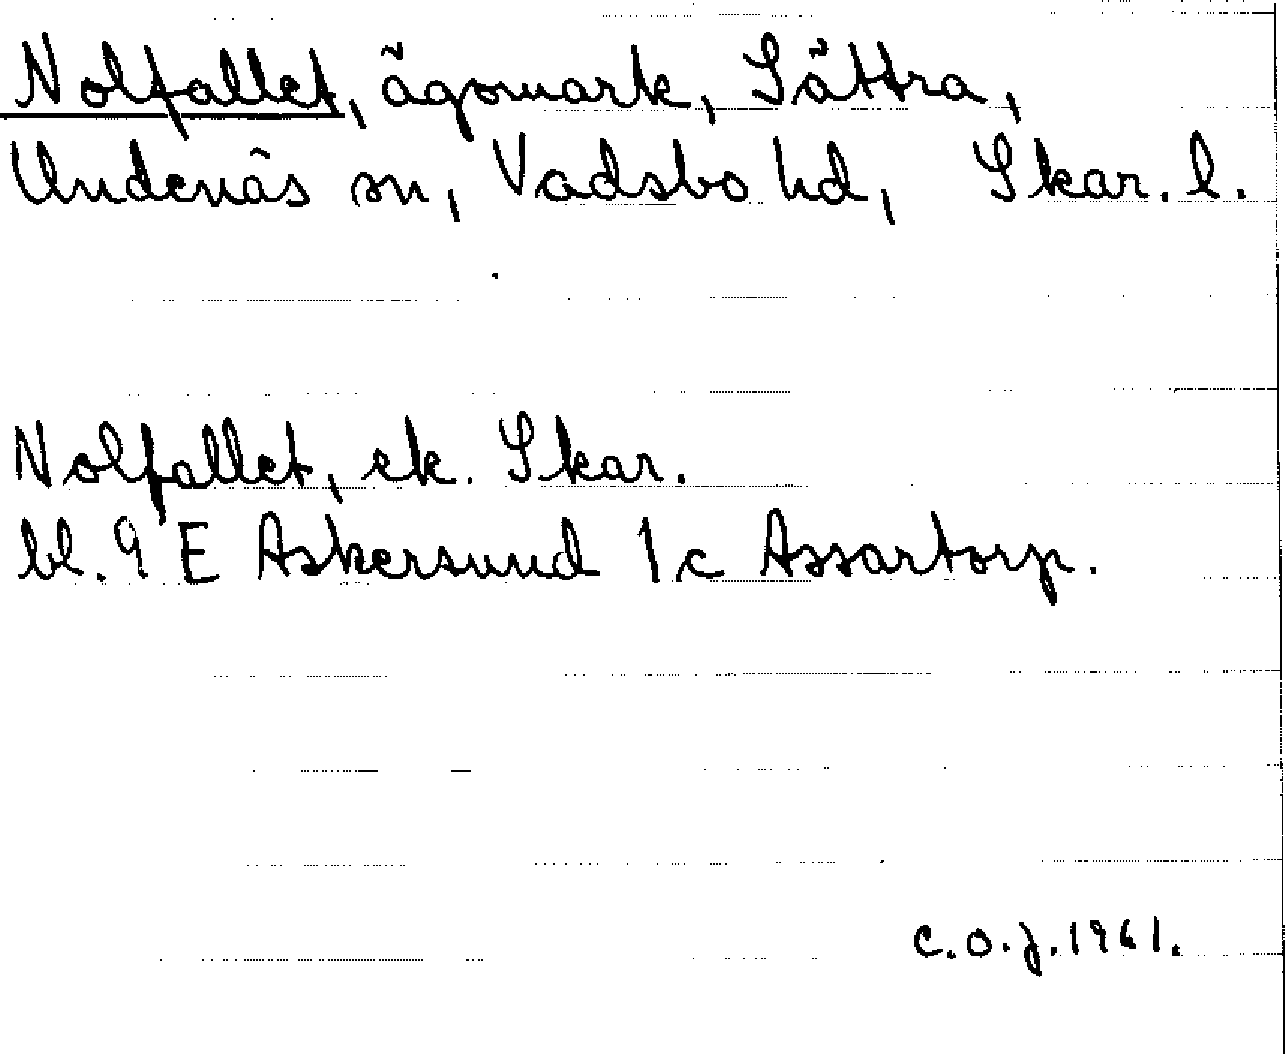 Nolfallet, ägomark, Sättra,
Undenäs sn, Vadsbo hd, Skar. l.
Nolfallet, ek. Skar.
bl. 9 E Askersund 1c Assartorp.
C.O.J. 1961.